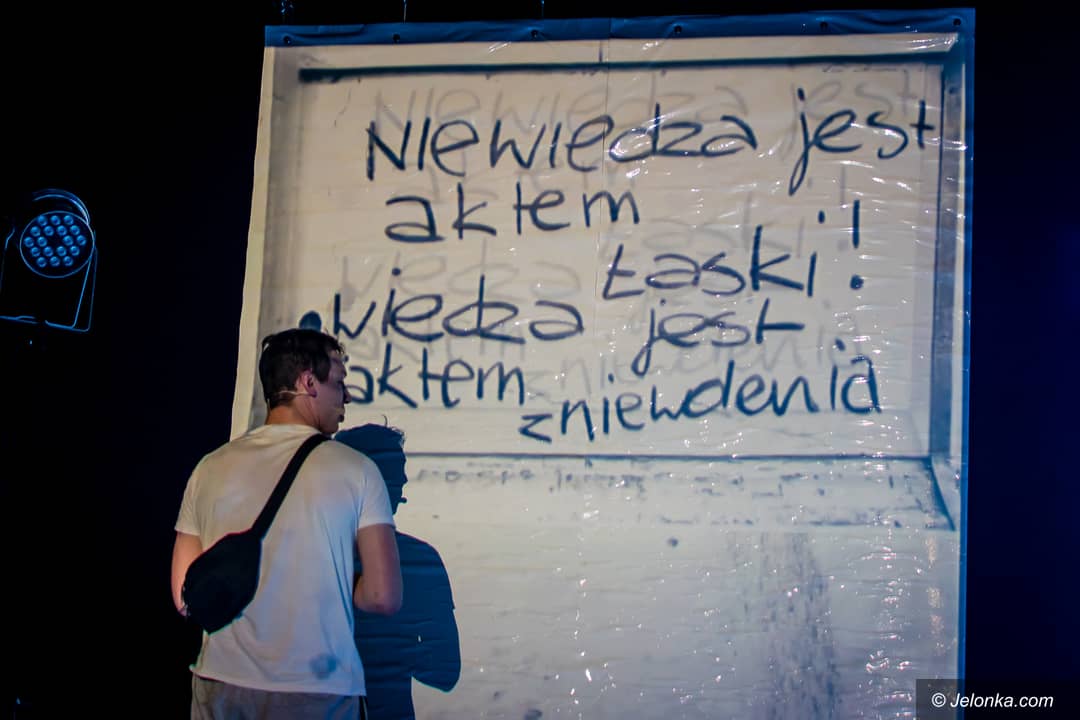 Niewiedza jest
aktem
łaski!
wiedza jest
aktem
zniewolenia
© Jelonka.com